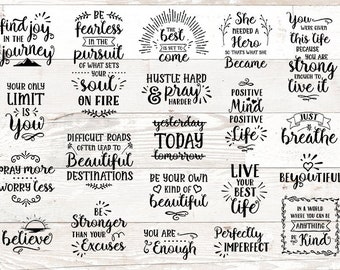 find joy
in the
journey
BE
fearless
IN THE
pursuit
OF WHAT SETS
YOUR
soul
ON FIRE
The
best
IS YET TO
come
She
NEEDED A
Hero
SO THAT'S WHAT
SHE
Became
You
WERE GIVEN
this life
BECAUSE
YOU ARE
strong
ENOUGH TO
live it
YOUR ONLY
LIMIT
IS
You
HUSTLE HARD
& pray
HARDER
POSITIVE
Mind
POSITIVE
Life
DIFFICULT ROADS
OFTEN LEAD TO
Beautiful
DESTINATIONS
yesterday
TODAY
tomorrow
JUST
breathe
PRAY MORE
WORRY LESS
BE YOUR OWN
KIND OF
beautiful
LIVE
YOUR
BEST
LIFE
BEYOUTIFUL
believe
BE
Stronger
THAN YOUR
Excuses
YOU ARE
Enough
Perfectly
IMPERFECT
IN A WORLD
WHERE YOU CAN BE
ANYTHING
BE
Kind